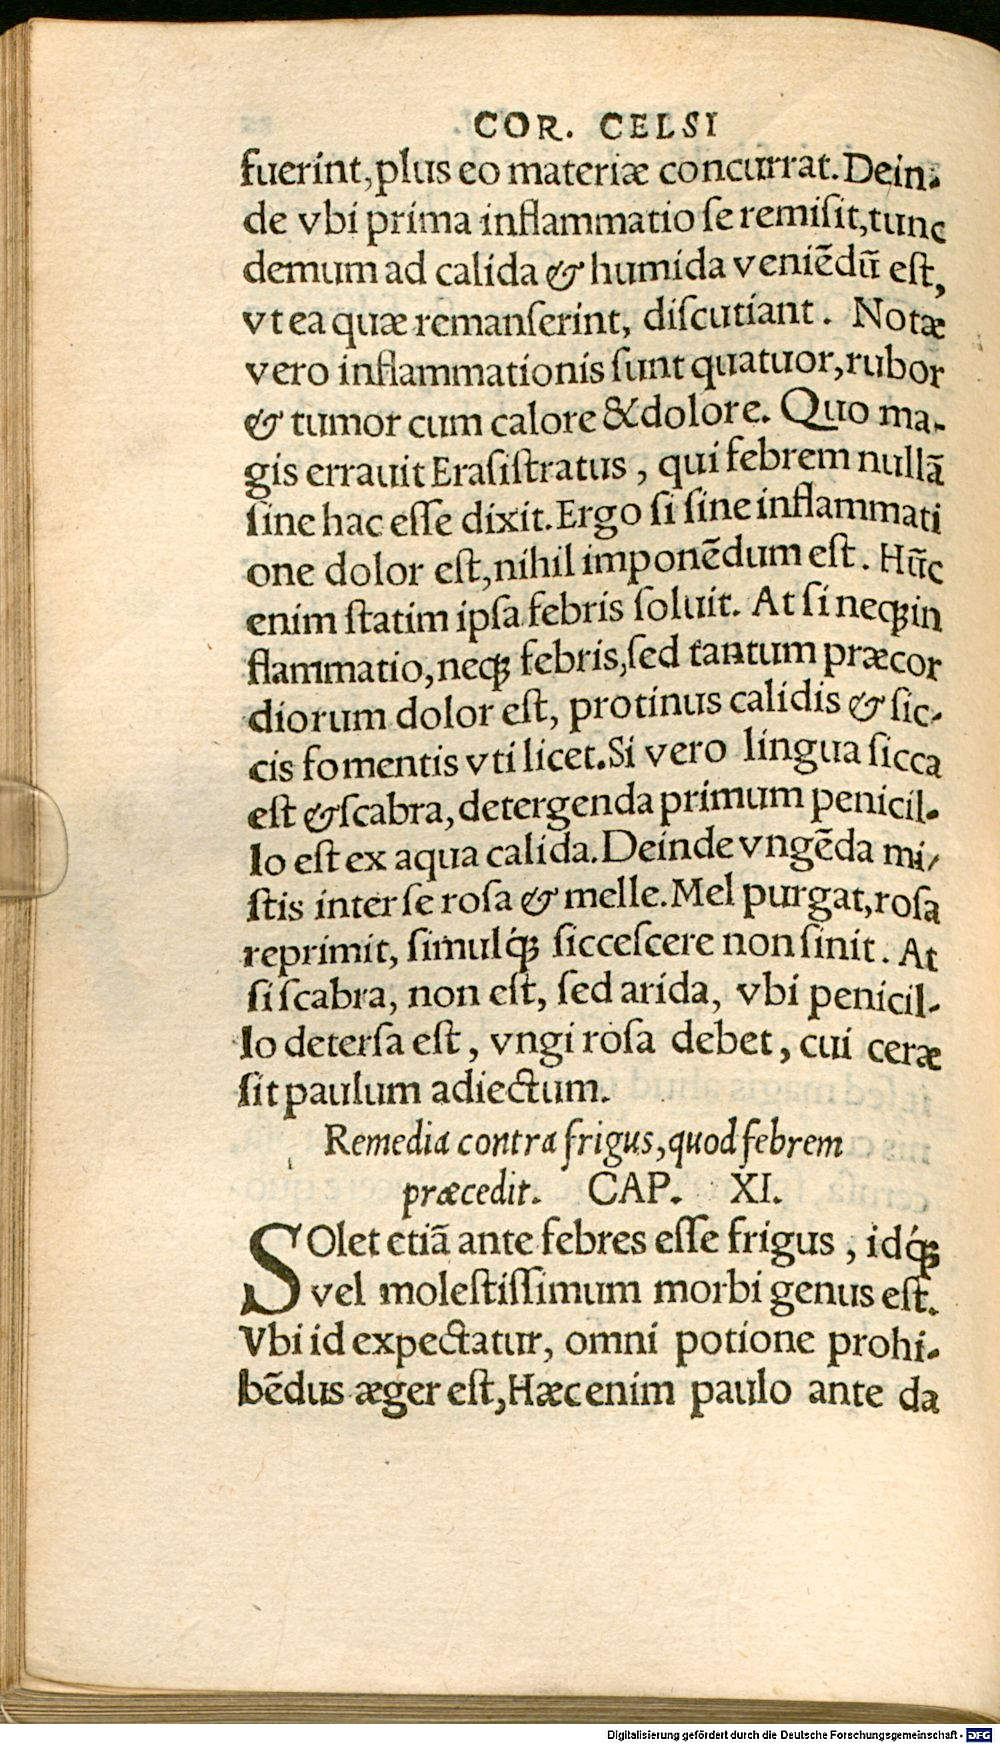 COR. CELSI
fuerint, plus eo materiæ concurrat. Dein-
de vbi prima inflammatio ſe remiſit, tunc
demum ad calida & humida veniẽdũ eſt,
vt ea quæ remanſerint, diſcutiant. Notæ
vero inflammationis ſunt quatuor, rubor
& tumor cum calore & dolore. Quo ma-
gis errauit Eraſiſtratus, qui febrem nullã
ſine hac eſſe dixit. Ergo ſi ſine inflammati
one dolor eſt, nihil imponẽdum eſt. Hũc
enim ſtatim ipſa febris ſoluit. At ſi neqꝫ in
flammatio, neqꝫ febris, ſed tantum præcor
diorum dolor eſt, protinus calidis & ſic-
cis fomentis vti licet. Si vero lingua ſicca
eſt & ſcabra, detergenda primum penicil-
lo eſt ex aqua calida. Deinde vngẽda mi-
ſtis inter ſe roſa & melle. Mel purgat, roſa
reprimit, ſimulq́ꝫ ſicceſcere non ſinit. At
ſi ſcabra, non eſt, ſed arida, vbi penicil-
lo deterſa eſt, vngi roſa debet, cui ceræ
ſit paulum adiectum.
Remedia contra frigus, quod febrem
præcedit. CAP. XI.
SOlet etiã ante febres eſſe frigus, idq́ꝫ
vel moleſtiſſimum morbi genus eſt.
Vbi id expectatur, omni potione prohi-
bẽdus æger eſt, Hæc enim paulo ante da
Digitalisierung gefördert durch die Deutsche Forschungsgemeinschaft - DFG